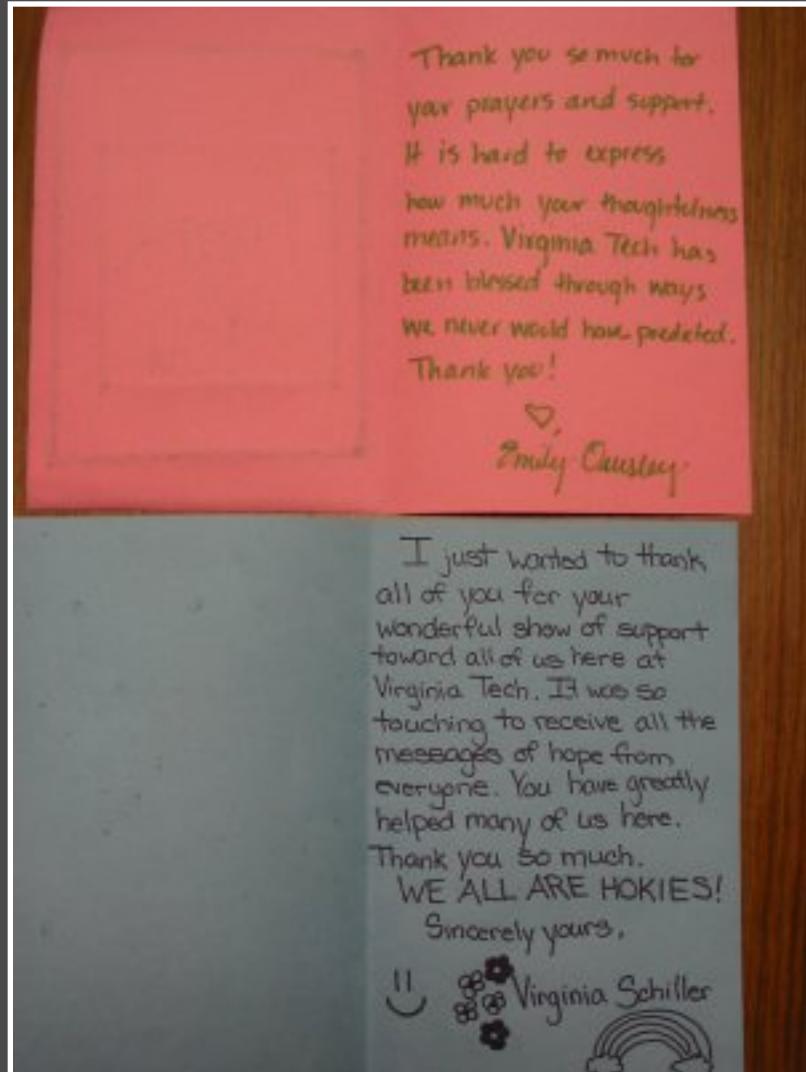 Thank you so much for
your prayers and support.
It is hard to express
how much your thoughtfulness
means. Virginia Tech has
been blessed through ways
we never would have predicted.
Thank you!
Emily
I just wanted to thank
all of you for your
wonderful show of support
toward all of us here at
Virginia Tech. It was so
touching to receive all the
messages of hope from
everyone. You have greatly
helped many of us here.
Thank you so much.
WE ALL ARE HOKIES!
Sincerely yours,
Virginia Schiller